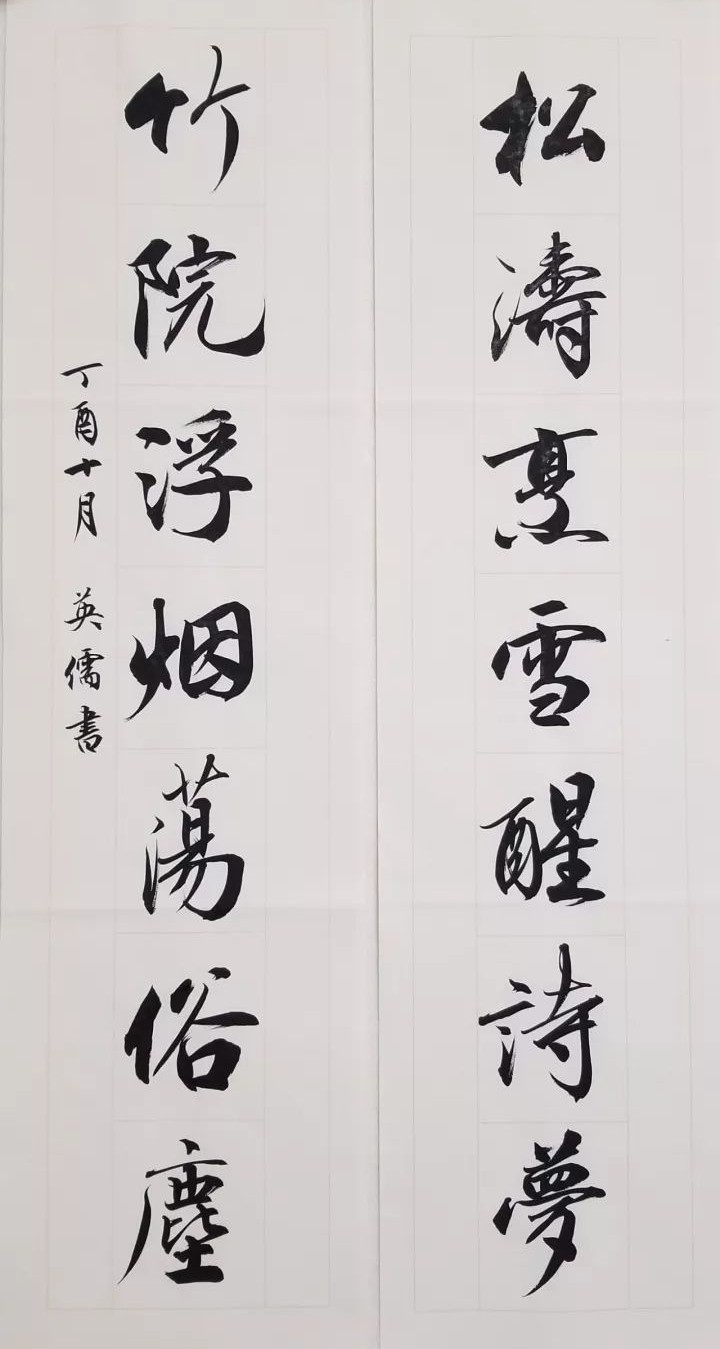 松濤烹雪醒詩夢
竹院浮烟蕩俗塵
丁酉十月 英儒書